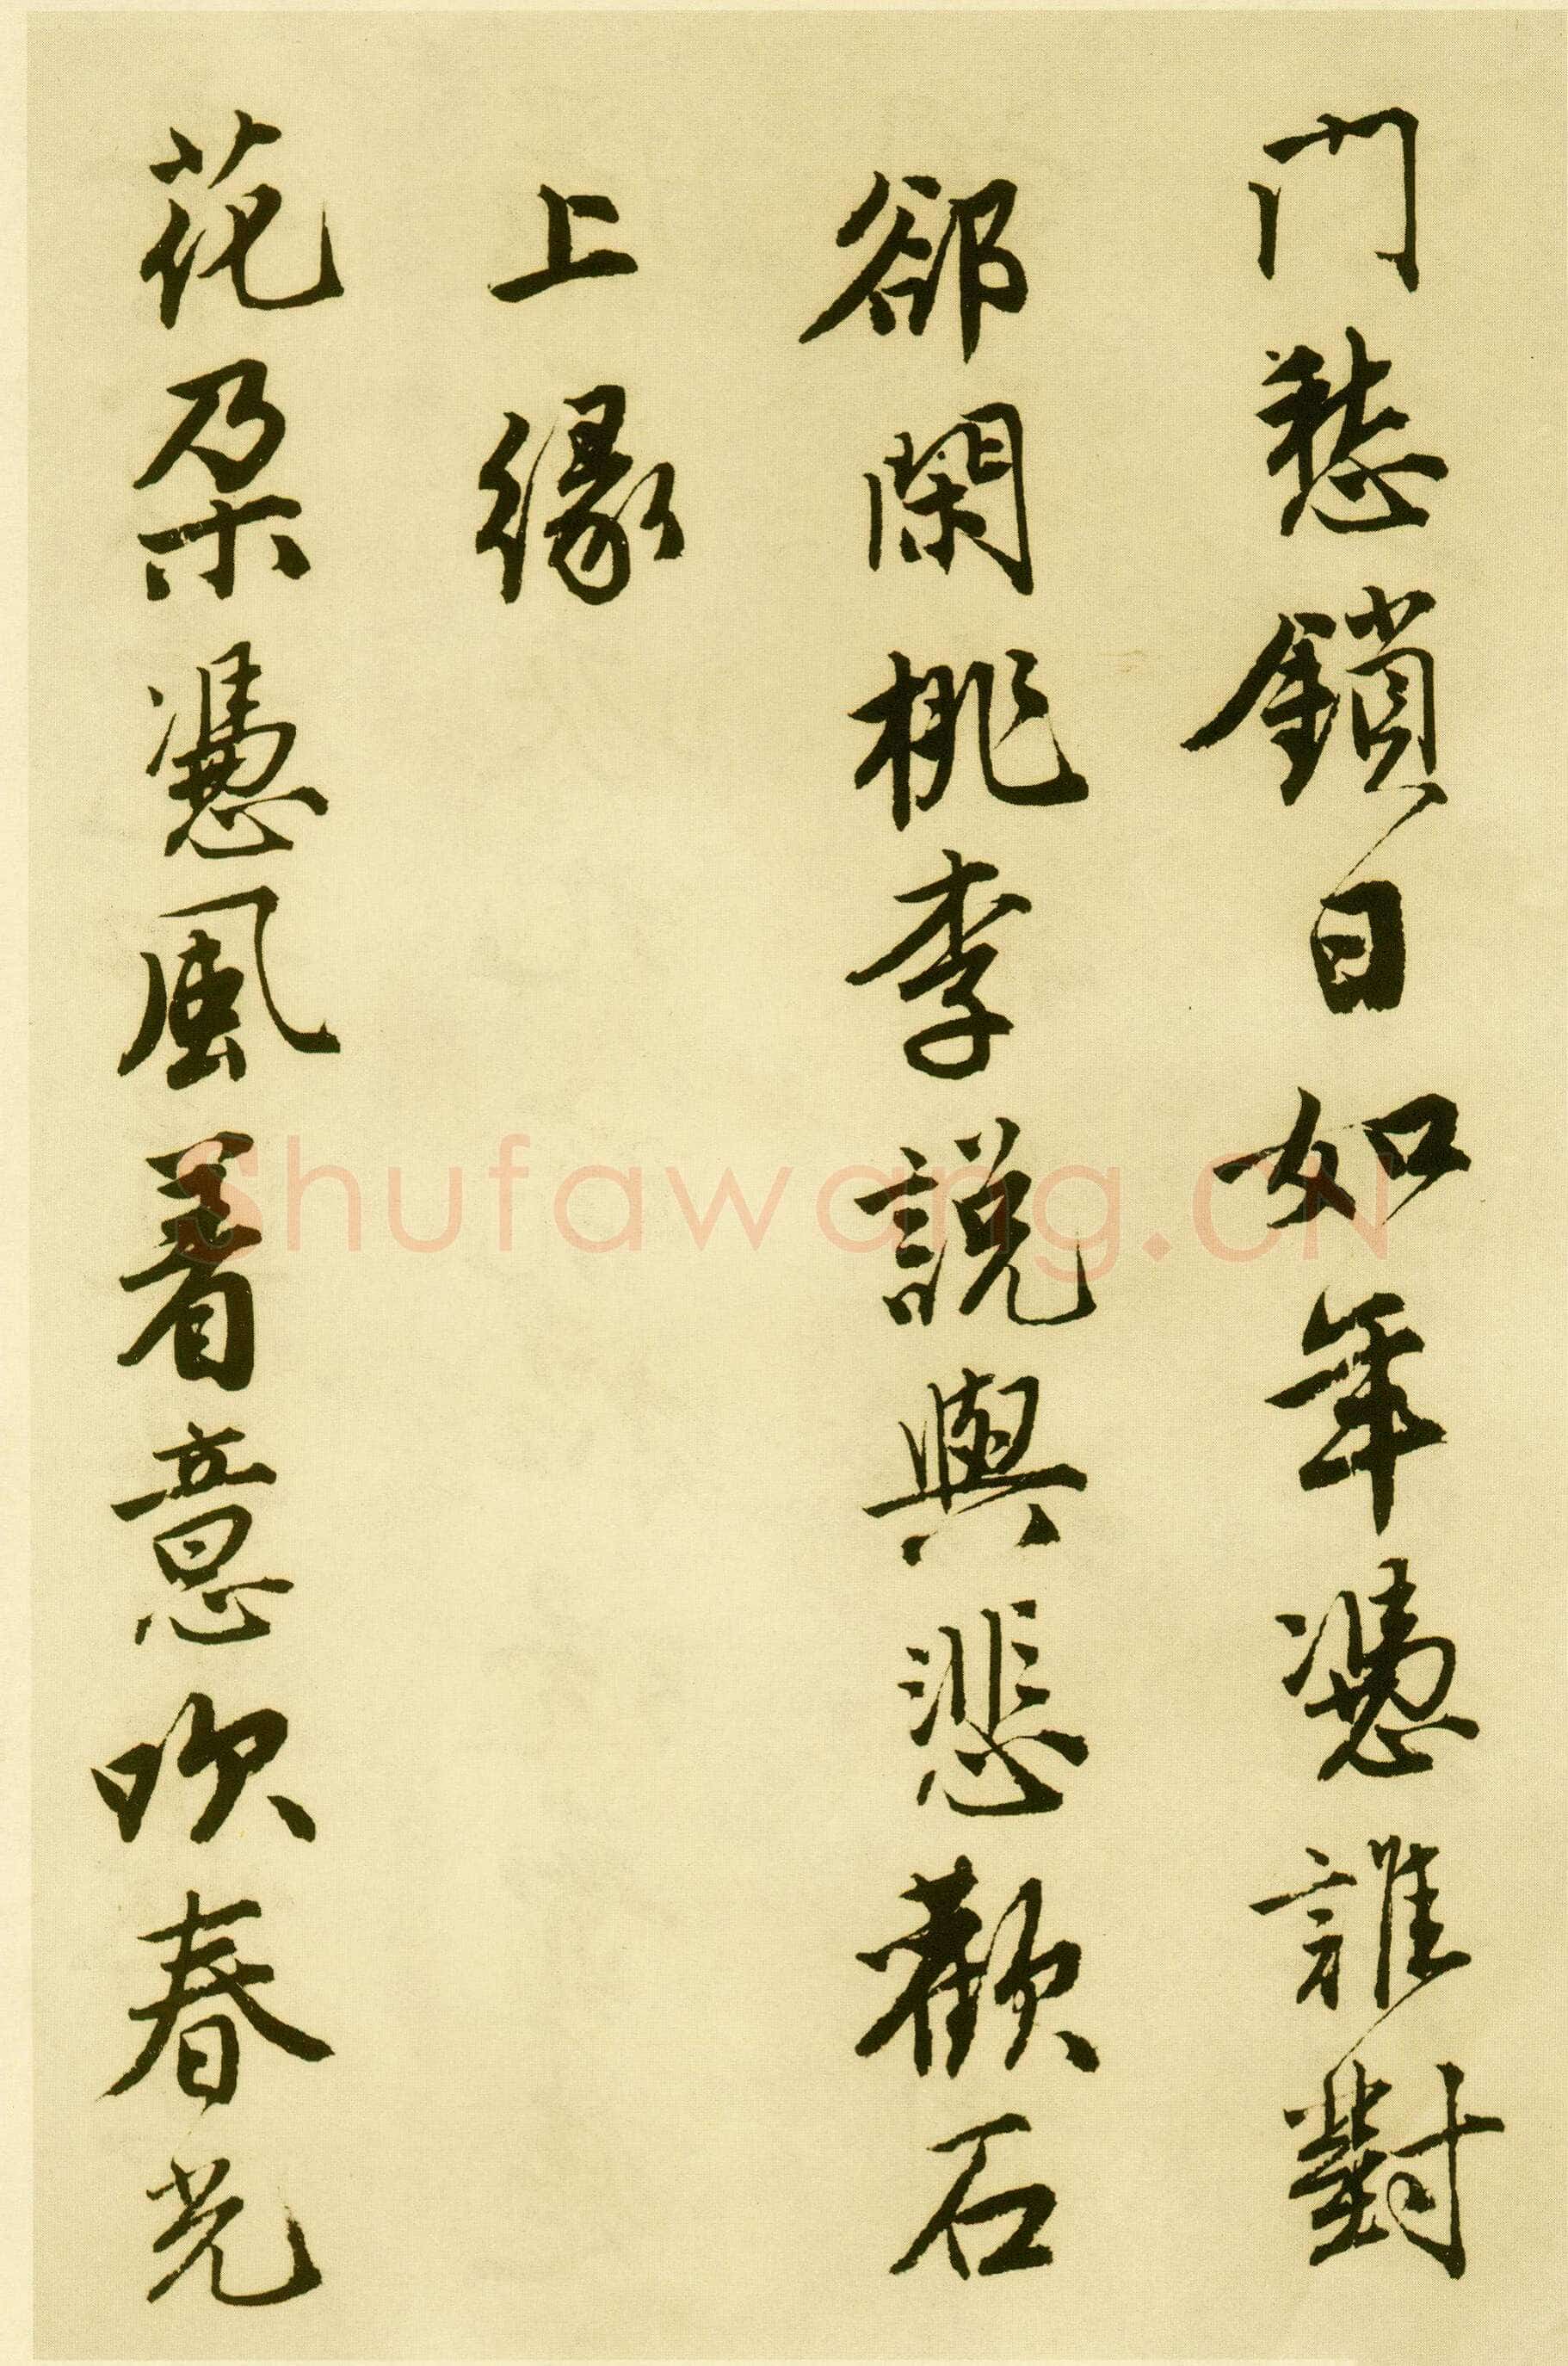 門愁鎖日如年憑誰對
郤閑桃李説與悲歡石
上緣
花朶憑風着意吹春光
Shufawang.CN